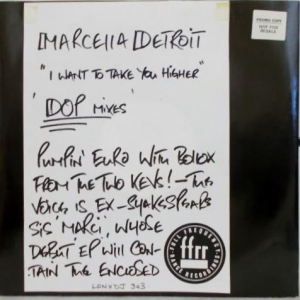 MARCELLA DETROIT
"I WANT TO TAKE YOU HIGHER"
'DOP MIXES'
PUMPIN' EURO WITH BOLLOX
FROM THE TWO KEVS! - THE
VOICE IS EX-SHAKESPEARS
SIS 'MARCI', WHOSE
DEBUT EP WILL CON-
TAIN THE ENCLOSED
LONXDJ 343
PROMO COPY
NOT FOR
RESALE
ffrr